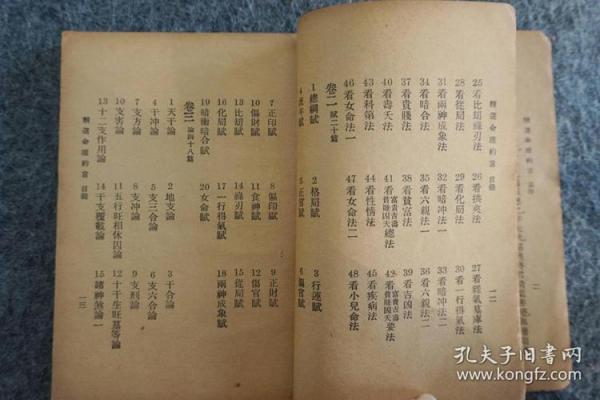 精選命理約言 目錄
一二
25 看比刼祿刃法
26 看揆夷法
28 看從局法
29 看化局法
30 看一行得氣法
31 看兩神成象法
32 看暗冲法一
33 看暗冲法二
34 看暗合法
35 看六親法一
36 看六親法二
37 看貴賤法
38 看貧富法
39 看吉凶法
40 看壽夭法
43 看科第法
44 看性情法
45 看疾病法
46 看女命法一
47 看女命法二
48 看小兒命法
卷二 賦二十篇
1 總綱賦
2 格局賦
3 行運賦
4 流年賦
5 正官賦
6 偏官賦
7 正印賦
8 偏印賦
9 正財賦
10 傷財賦
11 食神賦
12 傷官賦
13 比刼賦
14 祿刃賦
15 從局賦
16 化局賦
17 一行得氣賦
18 兩神成象賦
19 暗衝暗合賦
20 女命賦
卷三 論四十八篇
1 天干論
2 地支論
3 干合論
4 干冲論
5 支三合論
6 支六合論
7 支方論
8 支冲論
9 支刑論
10 支害論
11 五行旺相休囚論
12 十干生旺墓等論
13 十二支作用論
14 干支覆載論
15 諸神煞論一
精選命理約言 目錄
一三
孔夫子旧书网
www.kongfz.com